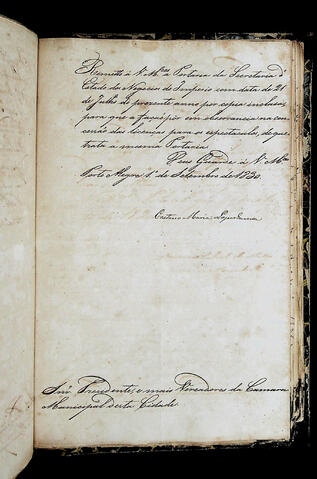 Remetto á V. M.ces a Portaria da Secretaria d'
Estado dos Negocios do Imperio com data de 21
de Julho do prezente anno por copia incluza,
para que a fação pôr em observancia na con
cessão das licenças para os espectaculos, de que
trata a mesma Portaria
Deos Guarde á V. M.ces
Porto Alegre 1º de Setembro de 1830.
Caetano Maria Lopes Gama
Snr.es Prezidente, e mais Vereadores da Camara
Municipal desta Cidade.